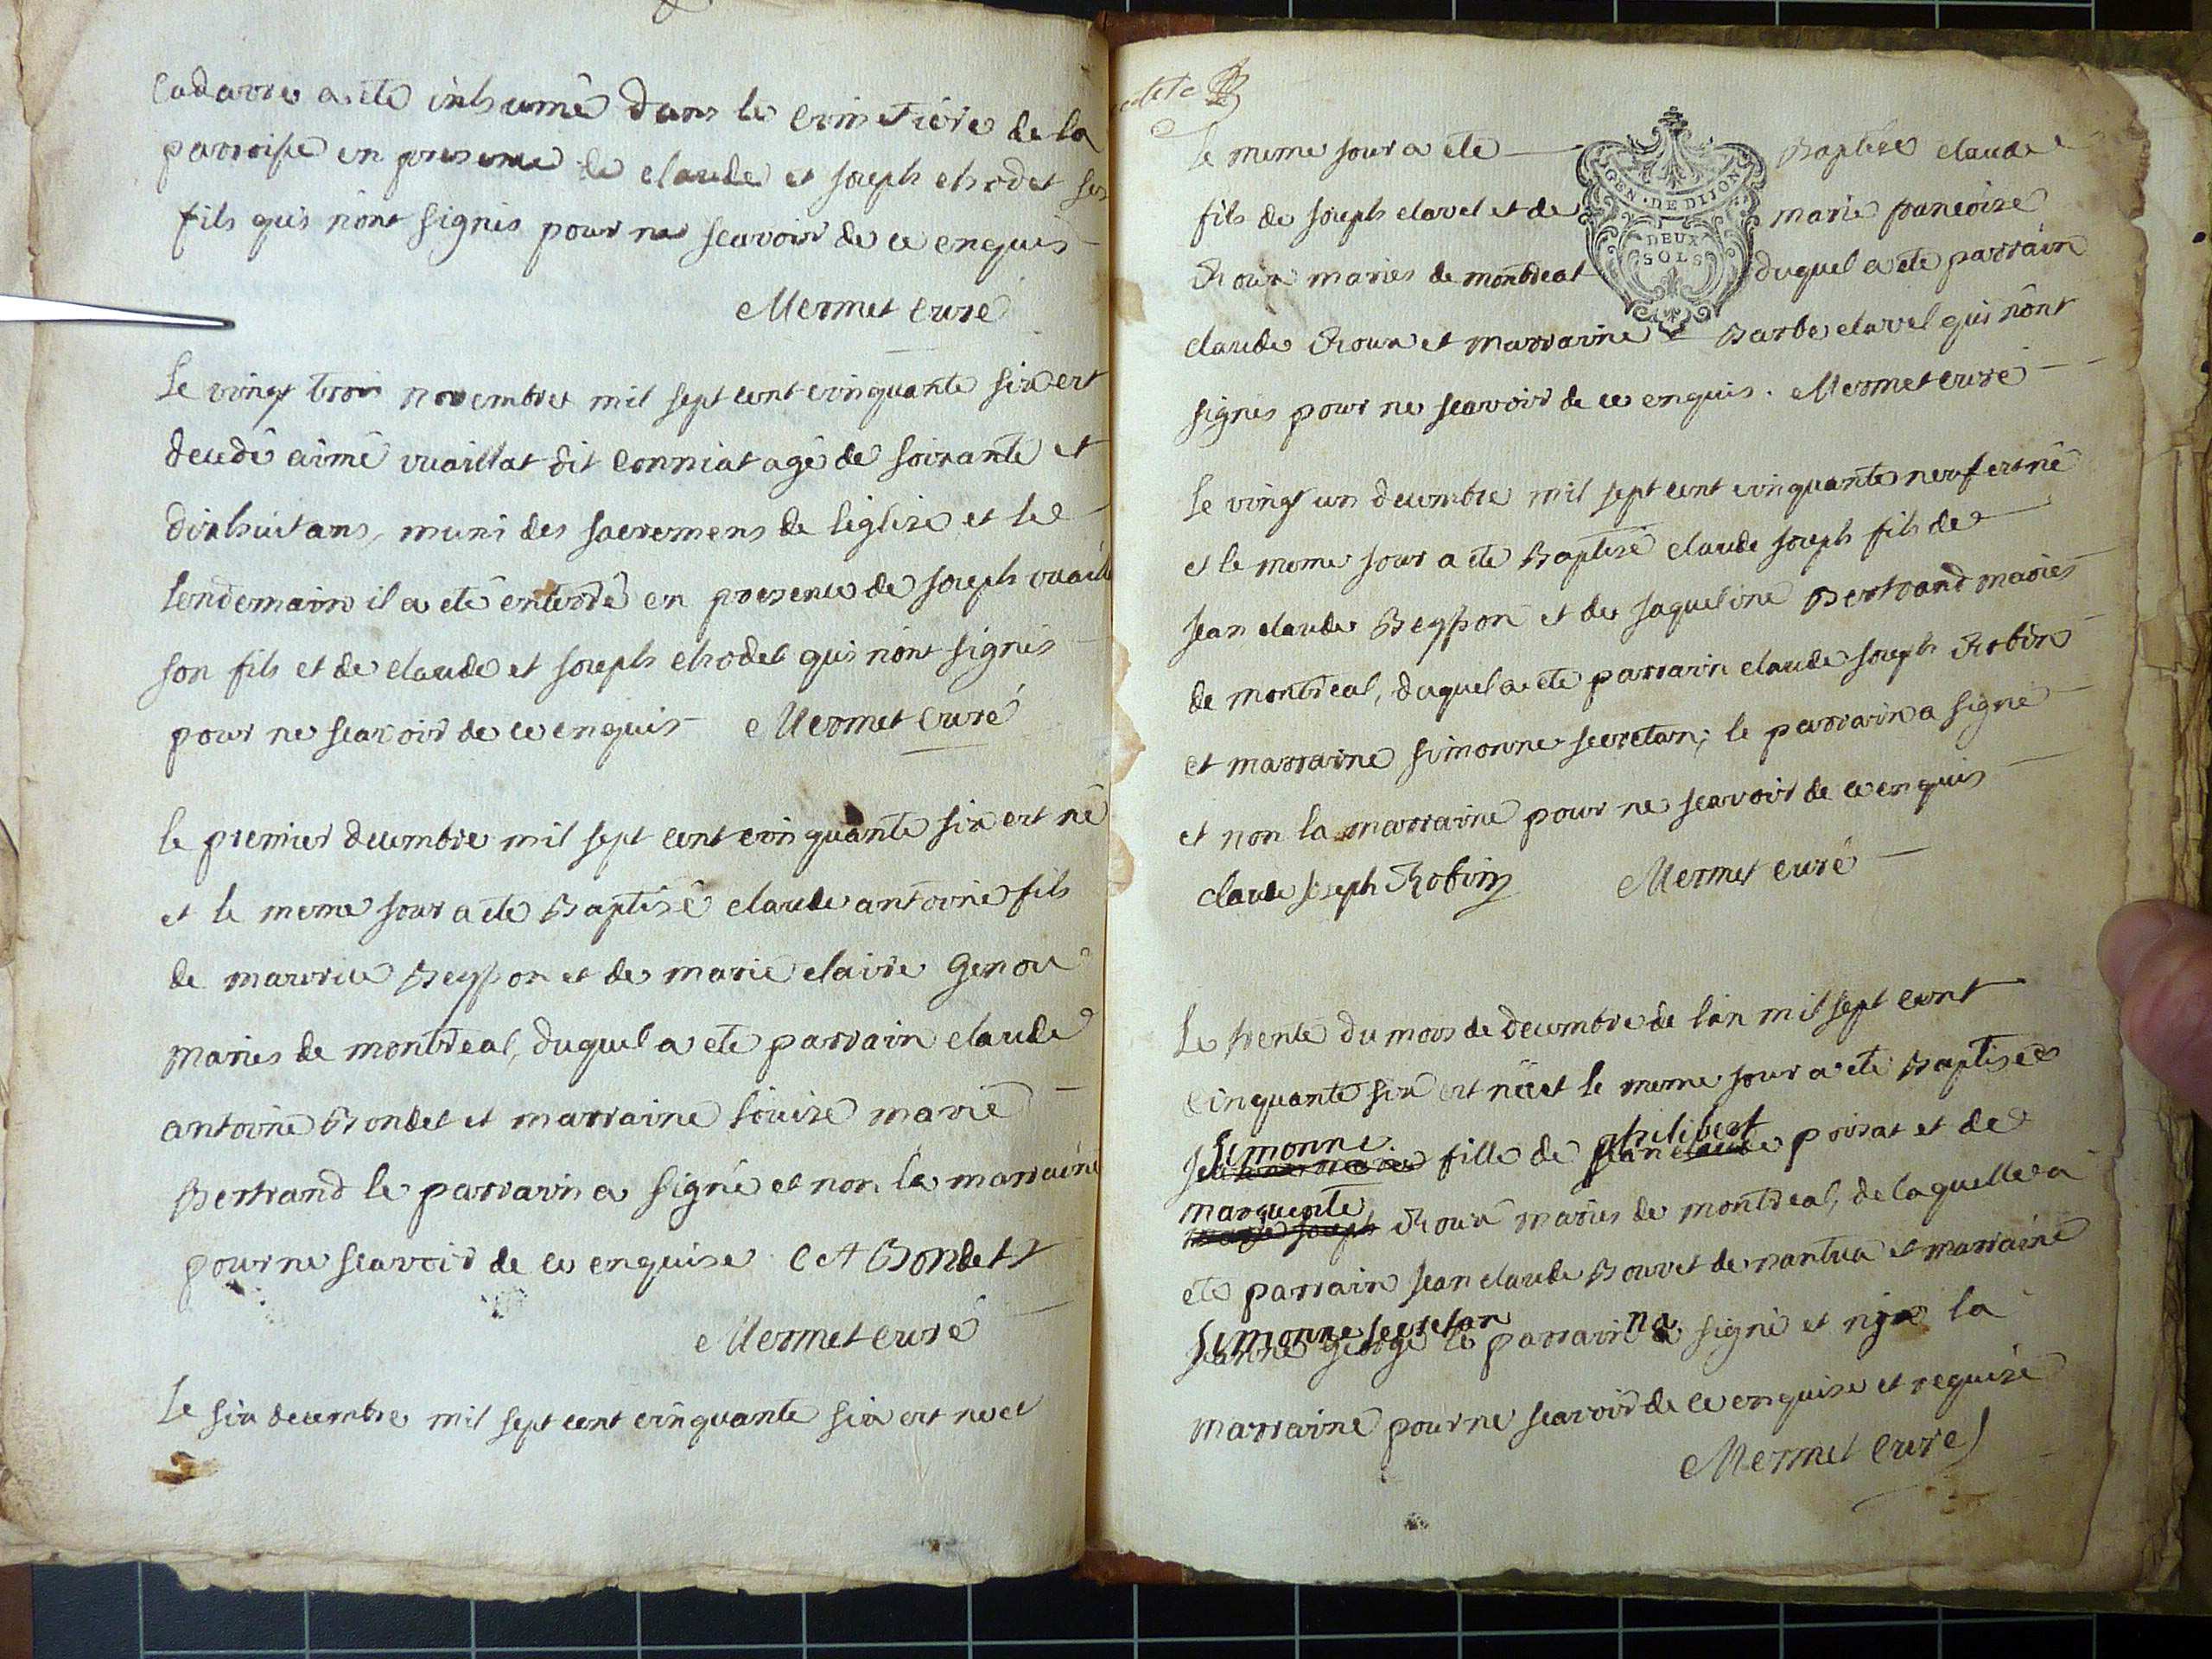 Cadavre a été inhumé dans le cimetiére de la
parroisse en presence de claude et joseph chodet ses
fils qui n'ont signés pour ne scavoir de ce enquis
Mermet Curé
Le vingt trois novembre mil sept cent cinquante six est
decedé aimé vuaillat dit Conniat agé de soixante et
dixhuit ans, muni des sacremens de l'eglise et le
lendemain il a eté enterré en presence de joseph vuaill
son fils et de claude et joseph chodet qui n'ont signés
pour ne scavoir de ce enquis Mermet Curé
le premier decembre mil sept cent cinquante six est né
et le meme jour a été Baptisé claude antoine fils
de maurice Beysson et de marie claire Genou
mariés de montreal, duquel a eté parrain claude
antoine Bondet et marraine louise marie
Bertrand le parrain a signé et non la marraine
pour ne scavoir de ce enquise C A Bondet
Mermet curé
Le six decembre mil sept cent cinquante six est né et
le meme jour a eté Baptisé claude
fils de joseph clavel et de marie francoise
Roux mariés de montreal duquel a eté parrain
claude Roux et marraine Barbe clavel qui n'ont
signés pour ne scavoir de ce enquis. Mermet curé
GEN · DE DIJON
DEUX
SOLS
Le vingt un decembre mil sept cent cinquante neuf est né
et le meme jour a eté Baptisé claude joseph fils de
jean claude Beysson et de jaqueline Bertrand mariés
de montreal, duquel a eté parrain claude joseph Robin
et marraine simonne secretan; le parrain a signé
et non la marraine pour ne scavoir de ce enquis
claude joseph Robin Mermet curé
Le trente du mois de decembre de l'an mil sept cent
cinquante six est née et le meme jour a eté Baptisée
Simonne fille de philibert poisat et de
marguerite Roux mariés de montreal, de laquelle a
eté parrain jean claude Bouvet de nantua et marraine
Simonne secretan le parrain na signé et la
marraine pour ne scavoir de ce enquise et requise
Mermet curé